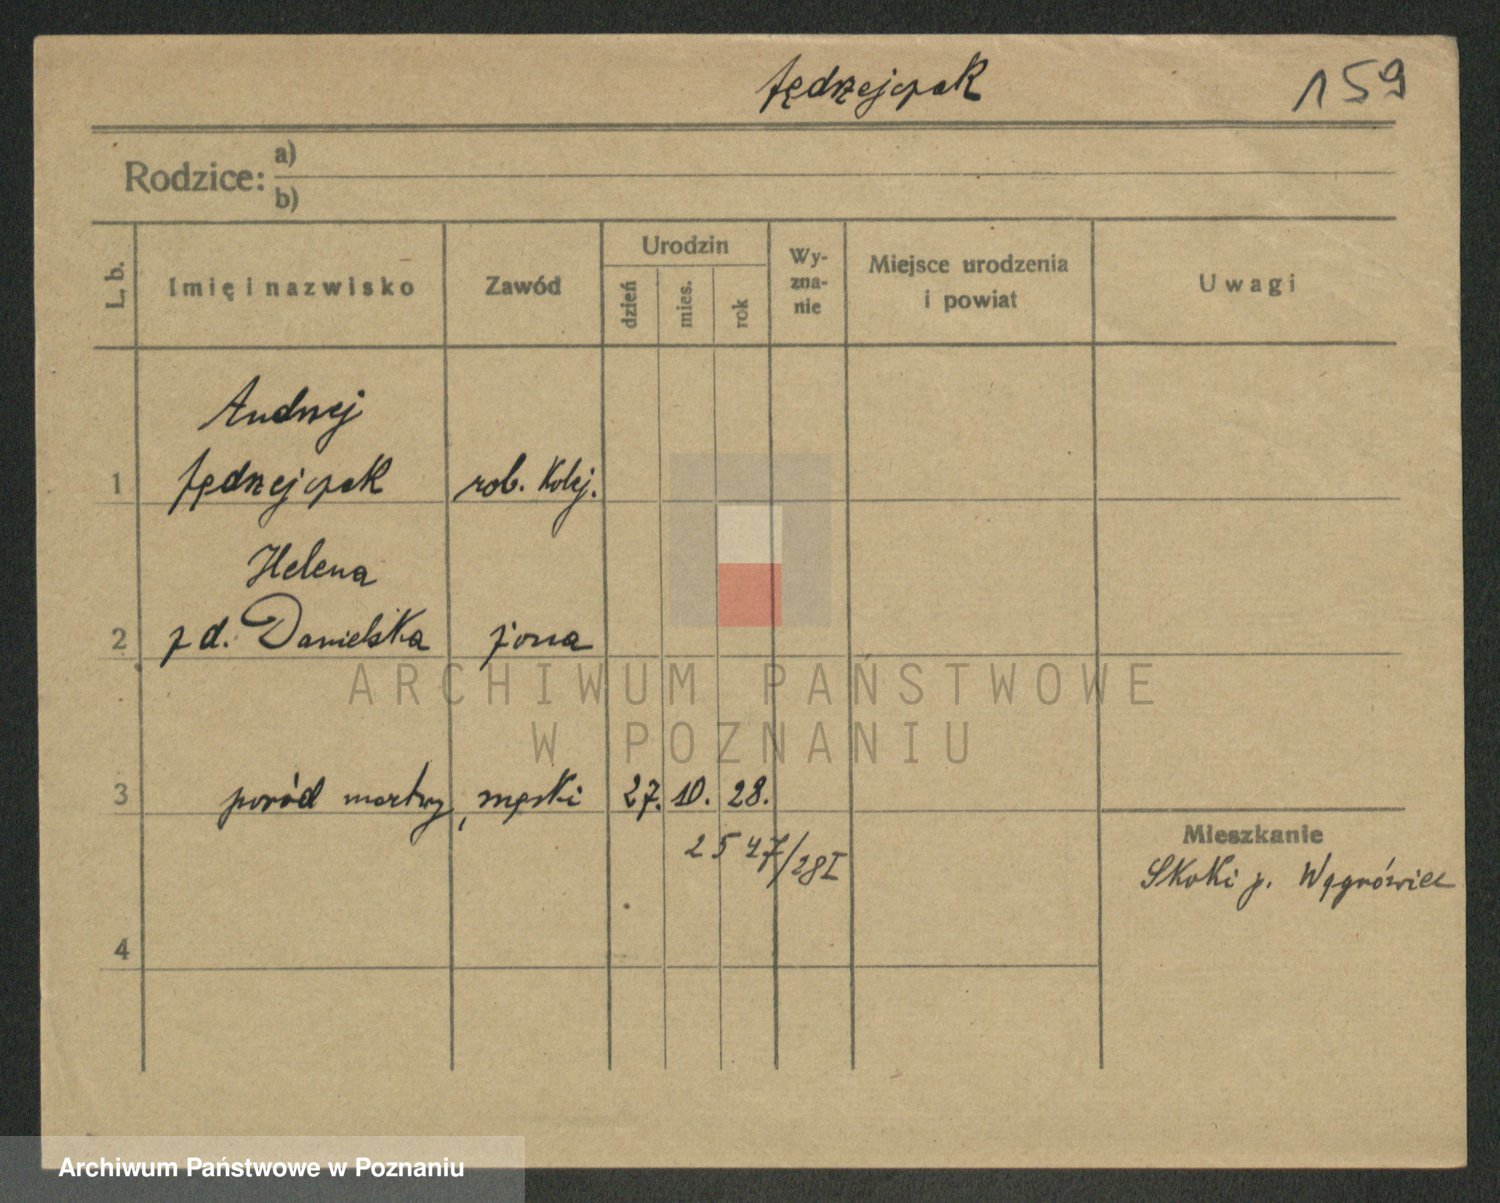 Jędrzejczak 159
Rodzice: a)
b)
L. b.
Imię i nazwisko
Zawód
Urodzin
dzień
mies.
rok
Wy-
zna-
nie
Miejsce urodzenia
i powiat
Uwagi
Andrzej
1 Jędrzejczak rob. Kolej.
Helena
2 z d. Danielska żona
ARCHIWUM PAŃSTWOWE
W POZNANIU
3 poród martwy, męski 27. 10. 28.
2547/28 I
Mieszkanie
Skoki p. Wągrówiec
4
Archiwum Państwowe w Poznaniu